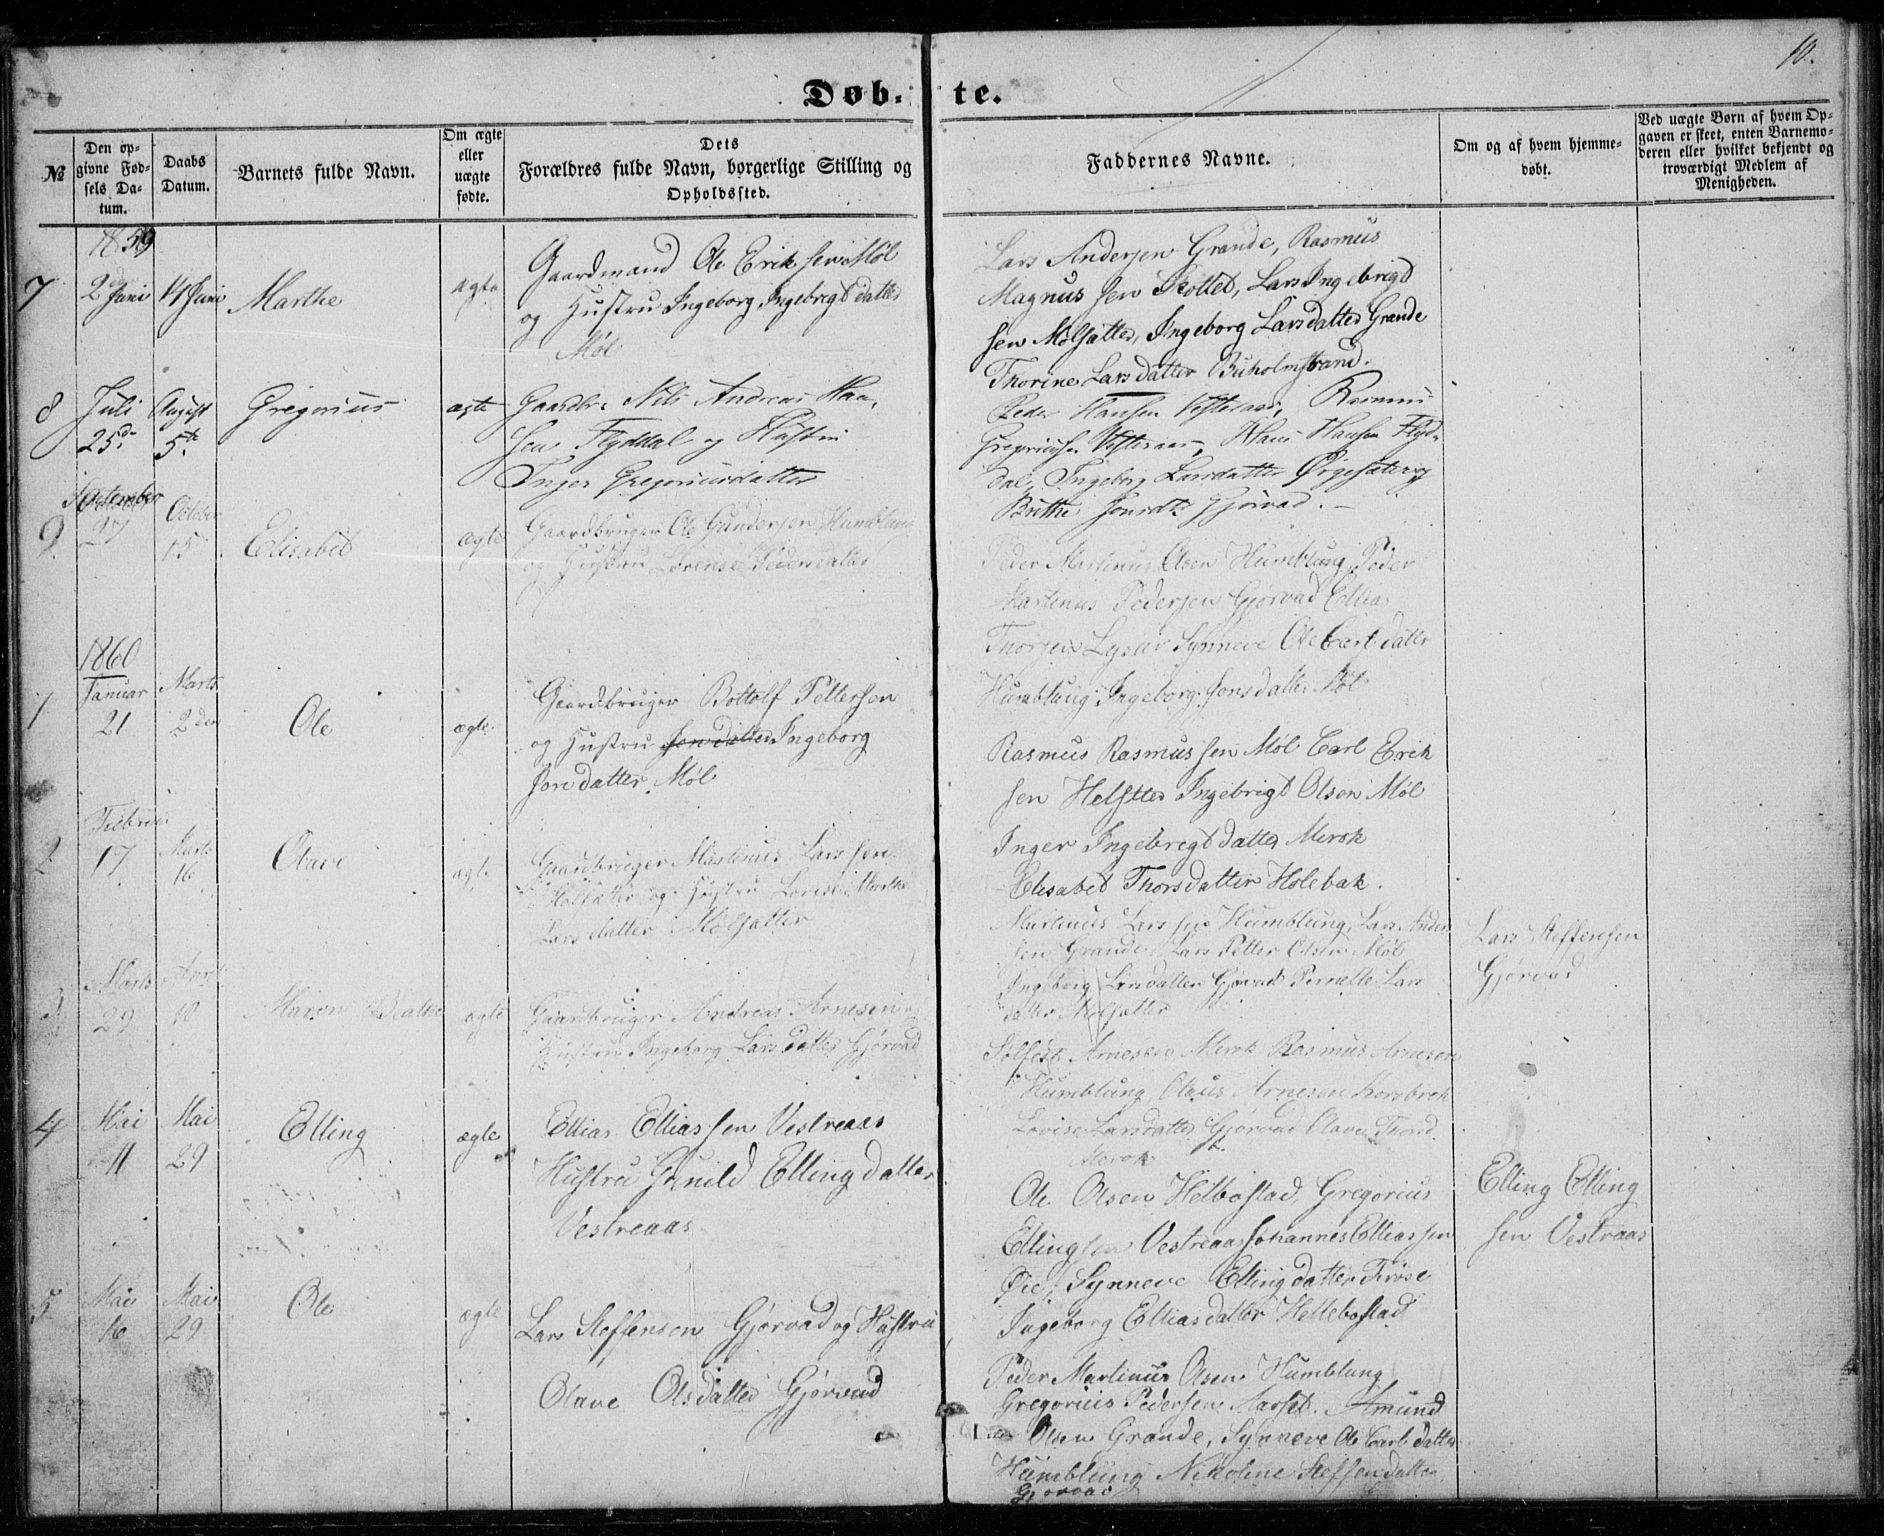 10.
Døb- te.
№
Den op-
givne Fød-
sels Da-
tum.
Daabs
Datum.
Barnets fulde Navn.
Om ægte
eller
uægte
fødte.
Dets
Forældres fulde Navn, borgerlige Stilling og
Opholdssted.
Faddernes Navne.
Om og af hvem hjemme-
døbt.
Ved uægte Børn af hvem Op-
gaven er skeet, enten Barnemo-
deren eller hvilket bekjendt og
troværdigt Medlem af
Menigheden.
1859
7
2 Juni
14 Juni
Marthe
ægte
Gaardmand Ole Erik sen Møl
og Hustru Ingeborg Ingebrigt datter
Møl
Lars Andersen Grande, Rasmus
Magnus sen Lars Ingebrigt
sen Mølsætter, Ingeborg Larsdatter Grande
Thorine Lars datter Buholmstrand.
8
Juli
25de
August
5te
Gregorius
ægte
Gaardbr. Nils Andreas Han-
sen Flyddal og Hustru
Inger Gregoriusdatter
Peder Hansen Vesteraas, Rasmus
Gregoriuss. Vesteraas, Hans Hansen Flyd-
dal, Ingeborg Larsdatter og
Brithe Jonsdtr Gjørvad. -
9
September
27
October
15
Elisabet
ægte
Gaardbruger Ole Gundersen Humblung
og Hustru Lovense Pedersdatter
Peder Martinus Olsen Humblung, Peder
Martinus Pedersen Gjørvad Ellias
Synneve Ole Carl datter
Humblung Ingeborg Jonsdatter Møl
1860
1
Januar
21
Marts
2den
Ole
ægte
Gaardbruger Bottolf Pettersen
og Hustru Jon datter Ingeborg
Jon datter Møl
Rasmus Rasmus sen Møl Carl Erik
sen Helsetter Ingebrigt Olsen Møl
Inger Ingebrigt datter Merok
Elisabet Thorsdatter Holebak.
2
Februar
17
Marts
16
Olave
ægte
Gaardbruger Martinus Lars sen
Mølsætter og Hustru Lovise Marthe
Lars datter Mølsætter
Martinus Lars sen Humblung, Lars Ander
sen Grande Lars Petter Olsen Møl
Ingeborg Larsdatter Gjørvad Pernelle Lars
datter Mølsætter
Lars Steffensen
Gjørvad
3
Marts
29
April
10
Maren Beathe
ægte
Gaardbruger Andreas Arnesen og
Hustru Ingeborg Lars datter Gjørvad
Solfest Arnesen Merok Rasmus Arnesen
Humblung, Olaus Arnesen Korsbrek
Lovise Larsdatter Gjørvad Olave Thord
Merok
4
Mai
11
Mai
29
Elling
ægte
Ellias Ellias sen Vestreaas
Hustru Gunild Elling datter
Vestreaas
Ole Olsen Helbostad, Gregorius
Elling sen Vestreaas Johannes Ellias sen
Øie, Synneve Elling datter
Ingeborg Ellias datter Hellebostad
Elling Elling
sen Vestraas
5
Mai
16
Mai
29
Ole
ægte
Lars Steffensen Gjørvad og Hustru
Olave Olsdatter Gjørvad
Peder Martinus Olsen Humblung
Gregorius Pedersen Aarset. Amund
Olsen Grande, Synneve Ole Carl datter
Humblung Nikoline Steffen datter
Gjørvad